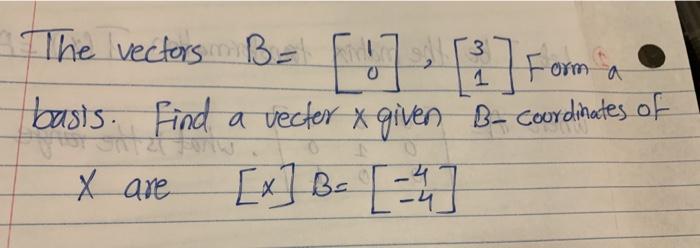 The vectors B = [1 0], [3 1] Form a
basis. Find a vector x given B- coordinates of
X are [x] B= [-4 -4]